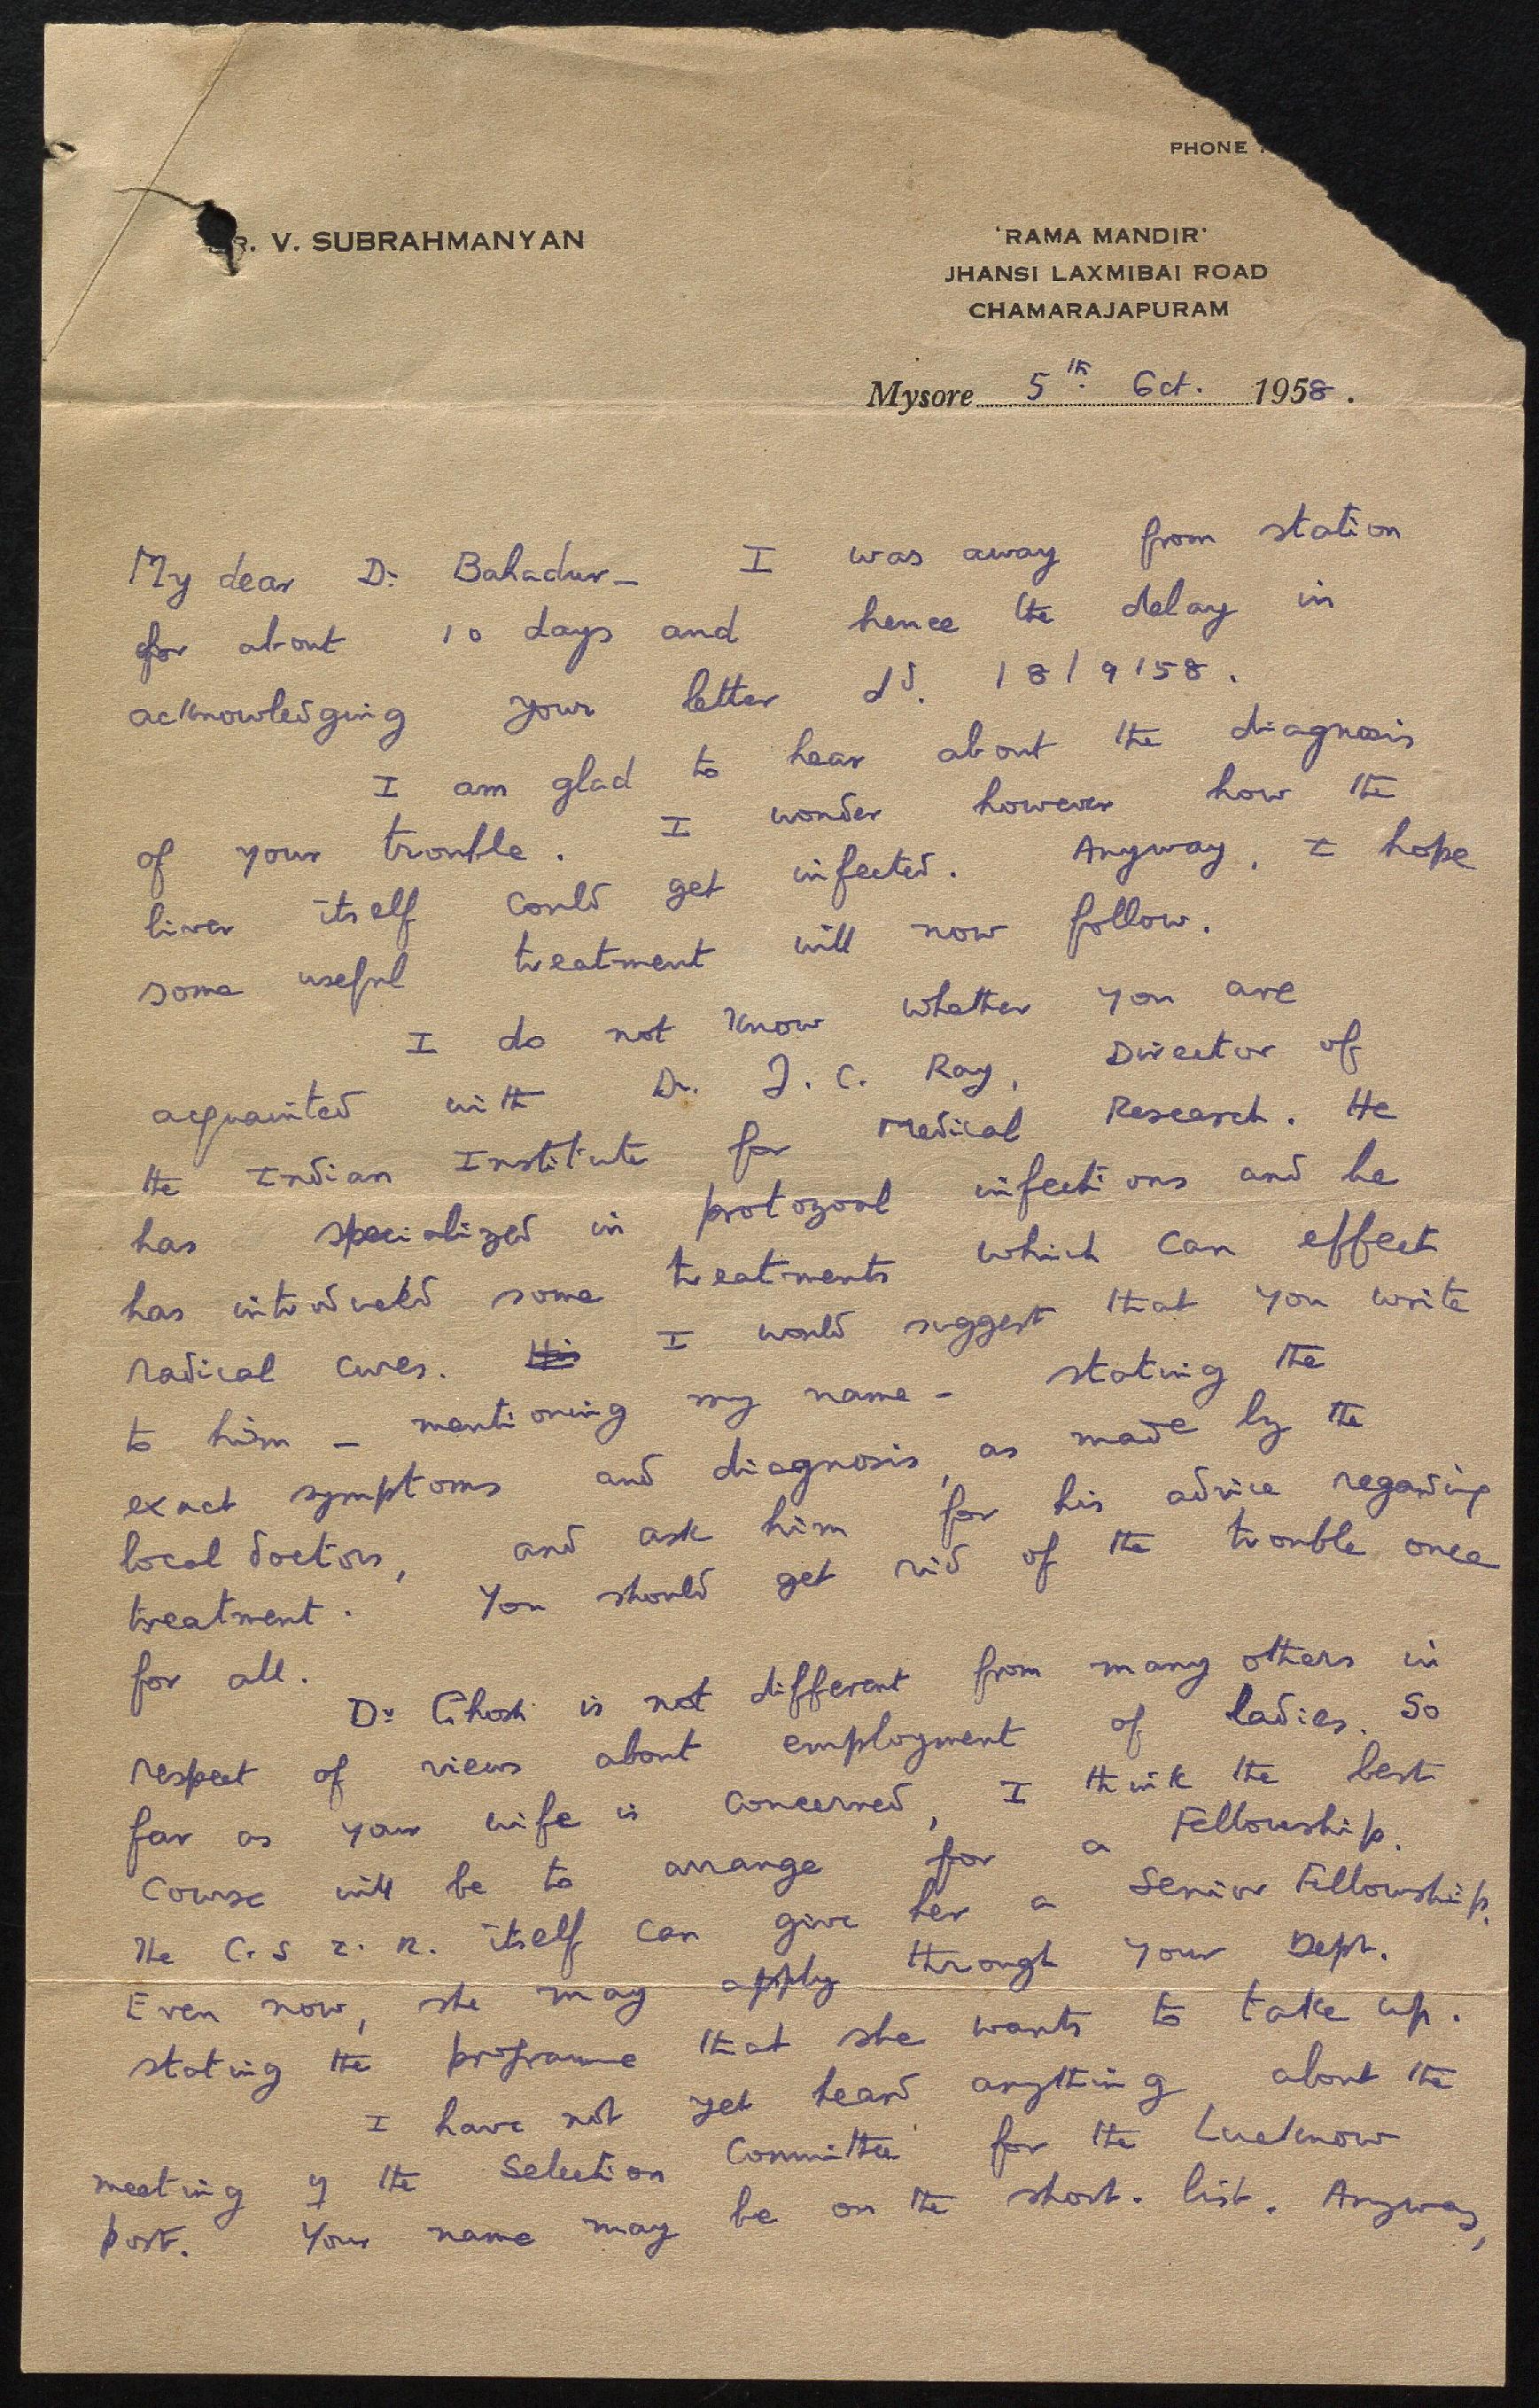 PHONE
DR. V. SUBRAHMANYAN
'RAMA MANDIR'
JHANSI LAXMIBAI ROAD
CHAMARAJAPURAM
Mysore 5th. Oct. 1958.
My dear Dr Bahadur - I was away from station
for about 10 days and hence the delay in
acknowledging your letter dd. 18/9/58.
I am glad to hear about the diagnosis
of your trouble. I wonder however how the
liver itself could get infected. Anyway, I hope
some useful treatment will now follow.
I do not know whether you are
acquainted with Dr. J. C. Ray, Director of
the Indian Institute for Medical Research. He
has specialized in protozoal infections and he
has introduced some treatments which can effect
radical cures. His I would suggest that you write
to him - mentioning my name - stating the
exact symptoms and diagnosis, as made by the
local doctors, and ask him for his advice regarding
treatment. You should get rid of the trouble once
for all.
Dr Ghosh is not different from many others in
respect of views about employment of ladies. So
far as your wife is concerned, I think the best
course will be to arrange for a Fellowship.
The C.S.I.R. itself can give her a Senior Fellowship.
Even now, she may apply through your Dept.
stating the programme that she wants to take up.
I have not yet heard anything about the
meeting of the Selection Committee for the Lucknow
post. Your name may be on the short-list. Anyway,